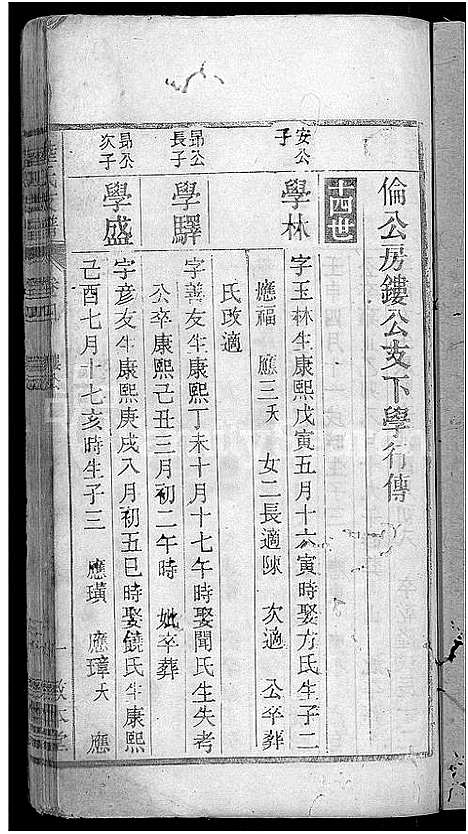 倫公房鏤公支下學行傳
十四世
安公子
學林
字玉林生康熙戊寅五月十六寅時娶方氏生子二
應福 應三夭 女二長適陳 次適 公卒葬
氏改適
昂公長子
學驛
字善友生康熙丁未十月十七午時娶聞氏生失考
公卒康熙己丑三月初二午時 妣卒葬
昂公次子
學盛
字彥友生康熙庚戌八月初五巳時娶饒氏生康熙
己酉七月十七亥時生子三 應璜 應璋夭 應